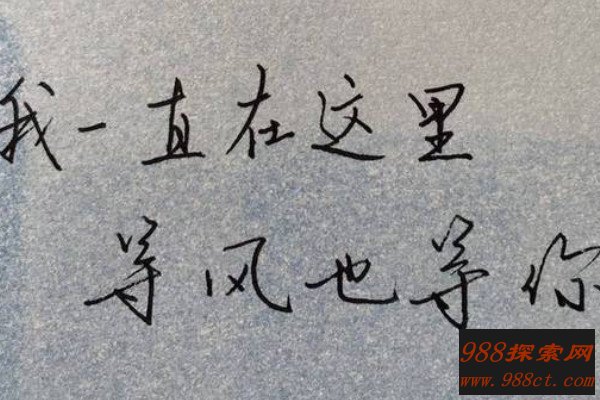 我一直在这里
等风也等你
988探索网
www.988ct.com